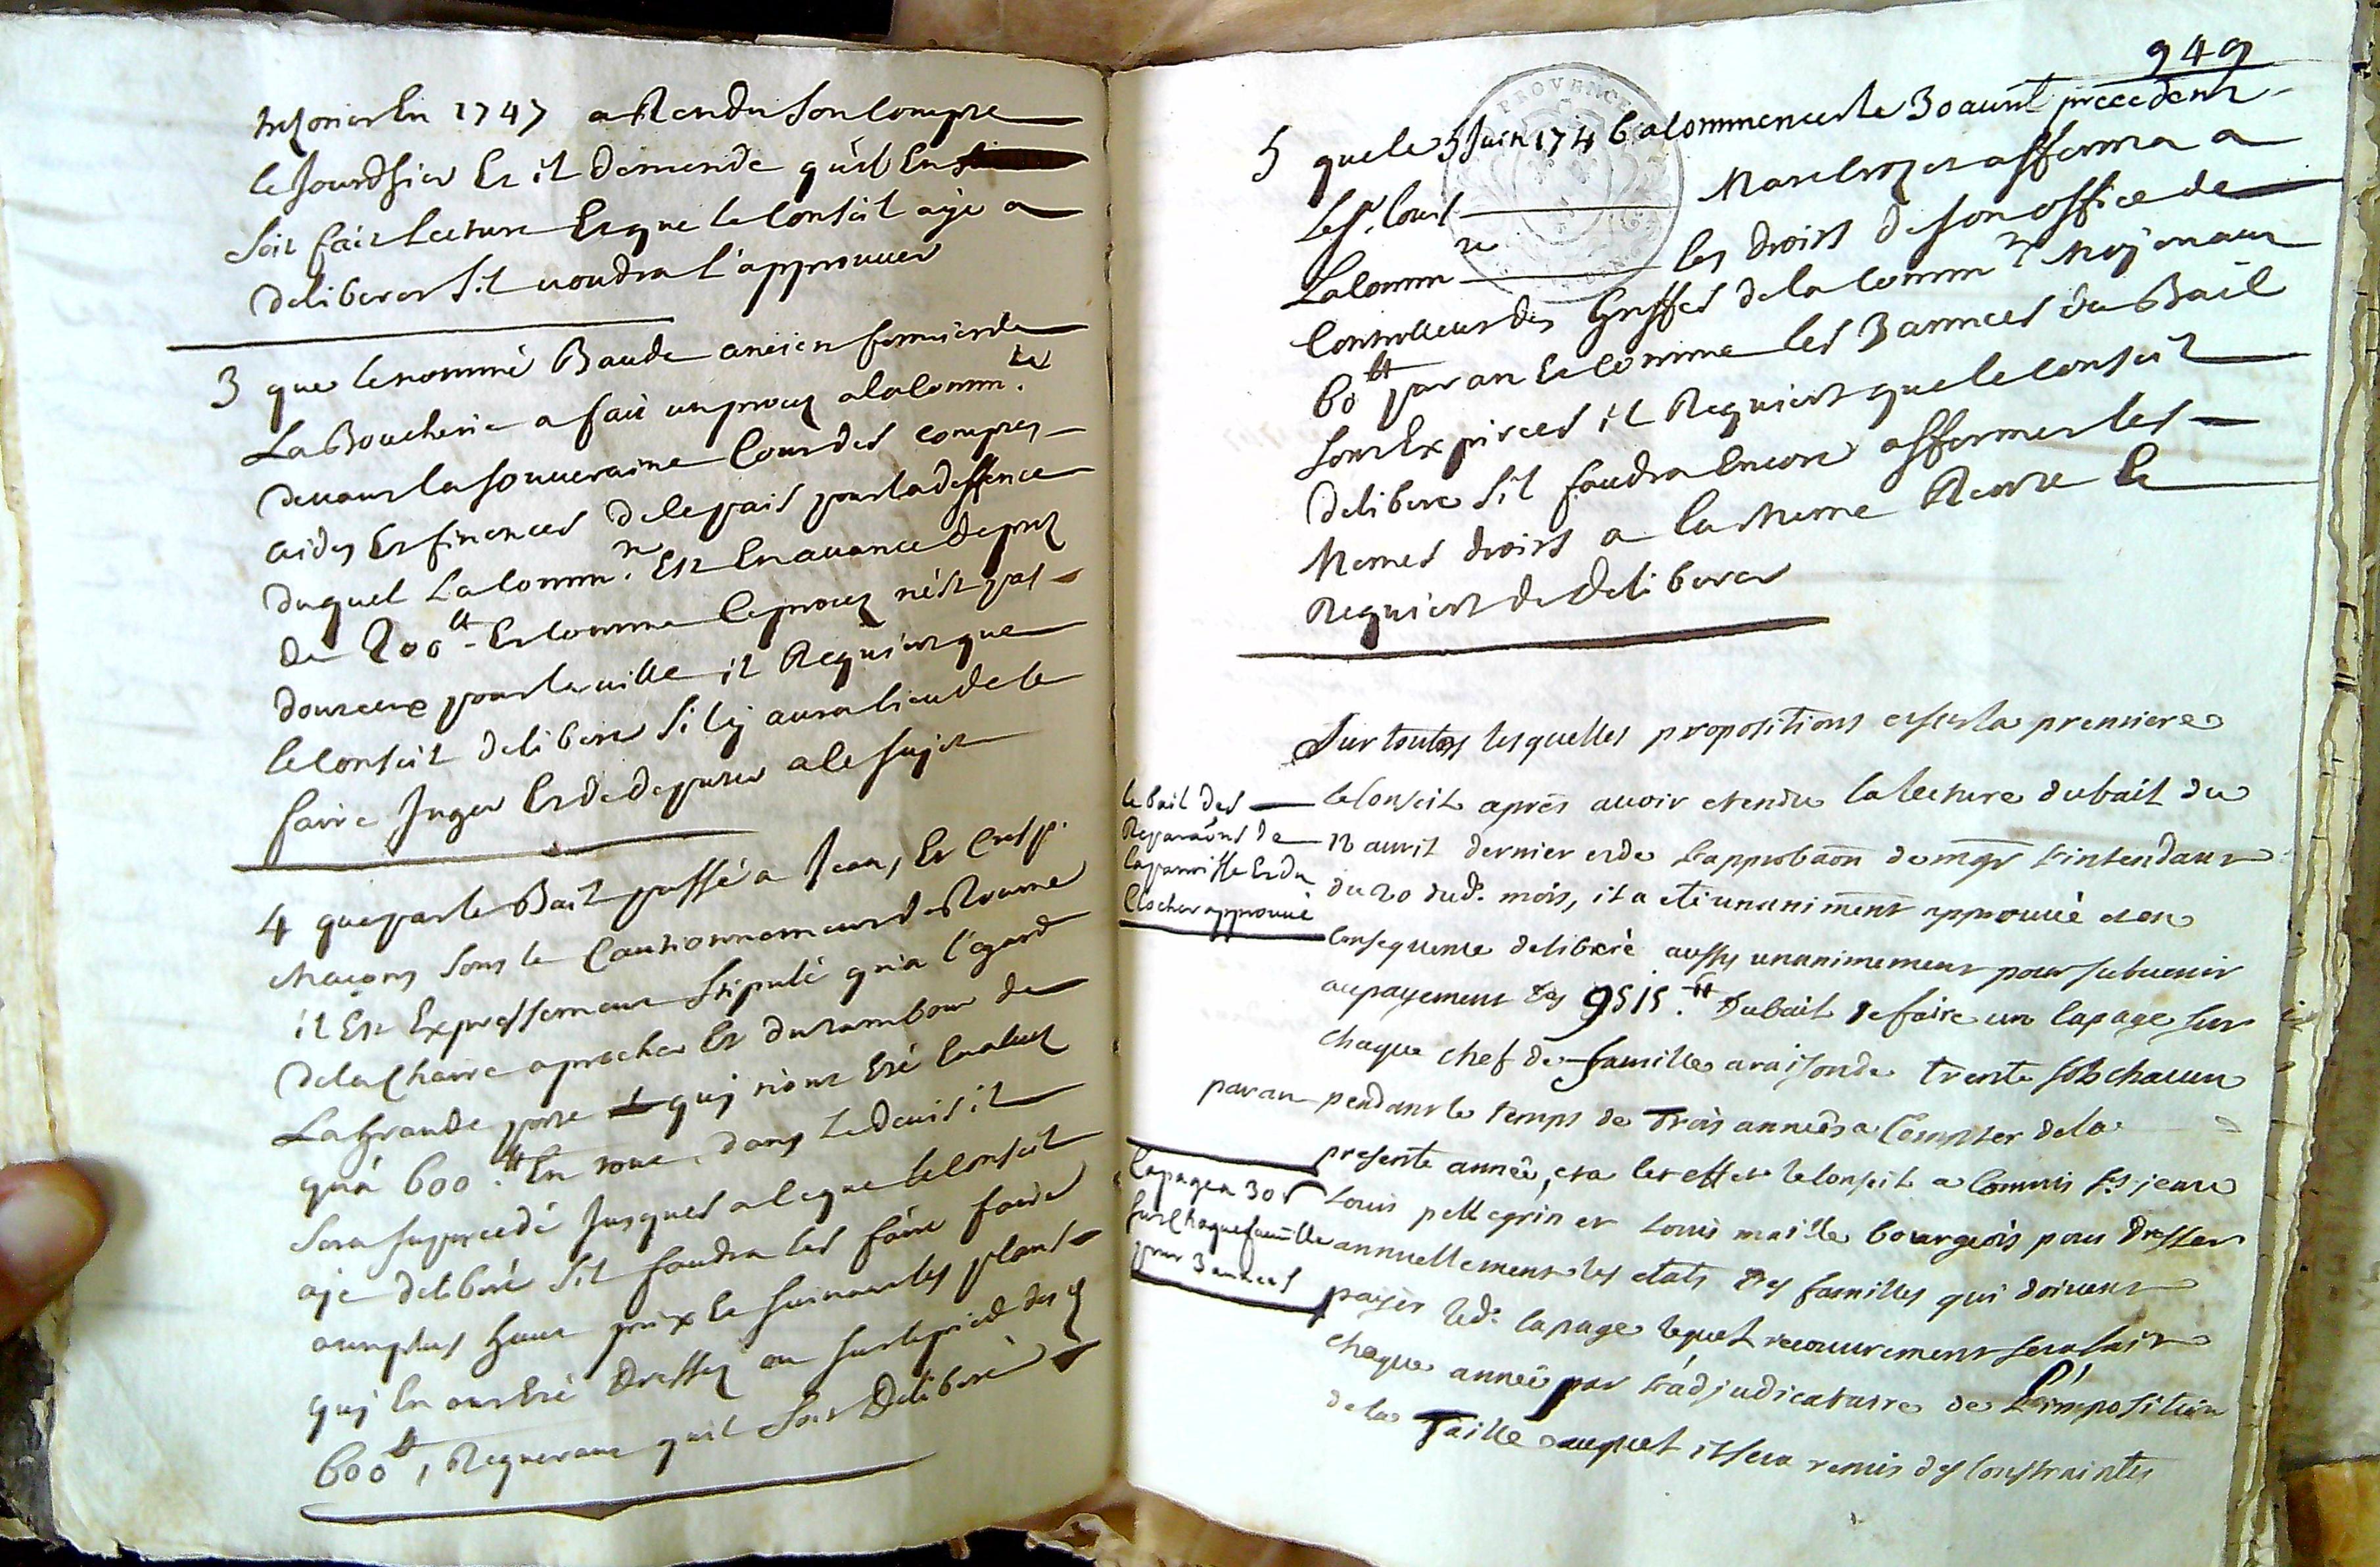 trezorier En 1747 a Rendu Son Compte
le Jourdhier Et il demande qu'il En
Soit fait Lecture Et que le Conseil aije a
deliberer S'il voudra l'approuver
3 que le nommé Baude ancien fermier de
La Boucherie a fait un procez a la Comm.té
devant la Souveraine Cour des comptes
aides Et finences de ce pais pour la deffence
duquel La Comm.té Est En avance de prez
de 200 tt Et comme le procez n'est pas
douteux pour la ville il Requiert que
le Conseil delibere S'il y aura lieu de le
faire Juger Et de deputer a ce Sujet
4 que par le Bail passé a Jean, Et Cresp.
Maçons Sous le Cautionnement de Roume
il Est Expressement Stipulé qu'a l'égard
de la Chaire a precher Et du tambour de
La Grande porte quj n'ont Eté Evaluez
qu'á 600 tt En tout, dans le devis il
Sera Supercedé Jusques a ce que le Conseil
aje deliberé S'il faudra les faire faire
a un plus haut prix Et Suivant les plans
quj En ont Eté Dressez ou Sur le pied des d.
600 tt, Requerant quil Soit Deliberé
949
5 que le 5 Juin 1746 a Commencer le 30 avril précédent
Le Sr. Louis Marclozet afferma a
La Comm té les droits de Son office de
Controlleur des Greffes de la Comm té Moyenant
60 tt par an Et Comme les 3 années du Bail
Sont Expirées il Requiert que le Conseil
delibere S'il faudra Encore affermer les
Memes droits a la Meme Rente Et
Requiert de deliberer
Sur toutes lesquelles propositions et sur la premiere
le bail des
Reparaõns de
la paroisse Et du
Clocher approuvé
le Conseil aprés avoir etendu la lecture du bail du
12 avril dernier et de l'approbaõn de mgr l'intendant
du 20 dud. mois, il a eté unanimemt approuvé et en
Consequence deliberé aussy unanimement pour subvenir
au payement des 9515. tt du bail de faire un Capage sur
chaque chef de famille a raison de trente sols chacun
par an pendant le temps de Trois années a Compter de la
presente année, et a cet effet le Conseil a Commis Srs jean
Capage a 30 s
Sur Chaque famille
pour 3 années
Louis pellegrin et Louis maille bourgeois pour dresser
annuellement les etats des familles qui doivent
payer led. Capage lequel recouvrement sera fait
chaque année par l'adjudicataire de L'imposition
de la Taille auquel il sera remis des Constraintes